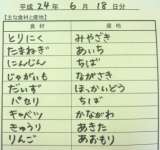 平成 24年 6月 18日分
1 主な食材と産地
食材 産地
とりにく みやざき
たまねぎ あいち
にんじん ちば
じゃがいも ながさき
だいず ほっかいどう
パセリ ちば
キャベツ かながわ
きゅうり あきた
りんご あおもり